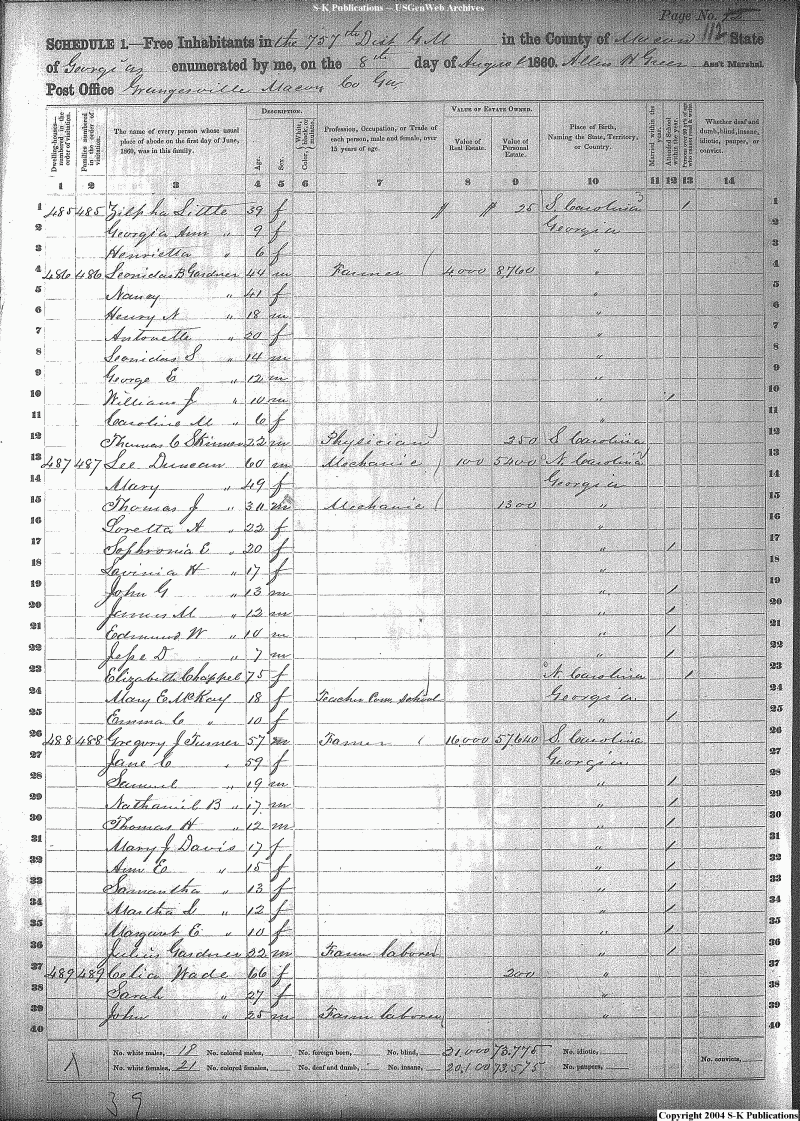 S-K Publications – USGenWeb Archives
Page No. 112
SCHEDULE 1.—Free Inhabitants in the 757th Dist G M in the County of Macon State
of Georgia enumerated by me, on the 8th day of August 1860. Allen H Greer Ass't Marshal.
Post Office Grangesville Macon Co Ga
Dwelling-house—numbered in the order of visitation.
Families numbered in the order of visitation.
The name of every person whose usual place of abode on the first day of June, 1860, was in this family.
DESCRIPTION.
Age.
Sex.
Color, White, black, or mulatto.
Profession, Occupation, or Trade of each person, male and female, over 15 years of age.
VALUE OF ESTATE OWNED.
Value of Real Estate.
Value of Personal Estate.
Place of Birth, Naming the State, Territory, or Country.
Married within the year.
Attended School within the year.
Persons over 20 y'rs of age who cannot read & write.
Whether deaf and dumb, blind, insane, idiotic, pauper, or convict.
1 2 3 4 5 6 7 8 9 10 11 12 13 14
1 485 485 Zilpha Little 39 f " " 25 S Carolina / 1
2 Georgia Ann " 9 f Georgia 2
3 Henrietta " 6 f " 3
4 486 486 Leonidas B Gardner 44 m Farmer 4000 8760 " 4
5 Nancy " 41 f " 5
6 Henry N " 18 m " 6
7 Antonette " 20 f " 7
8 Leonidas S " 14 m " 8
9 George E " 12 m " 9
10 William J " 10 m " / 10
11 Caroline M " 6 f " 11
12 Thomas C Skinner 22 m Physician 250 S Carolina 12
13 487 487 Lee Duncan 60 m Mechanic 100 5400 N. Carolina 13
14 Mary " 49 f Georgia 14
15 Thomas J " m Mechanic 1300 " 15
16 Loretta A " 22 f " 16
17 Sophronia E " 20 f " / 17
18 Lavinia H " 17 f " 18
19 John G " 13 m " / 19
20 James M " 12 m " / 20
21 Edmund W " 10 m " / 21
22 Jesse D " 7 m " / 22
23 Elizabeth Chappel 75 f N. Carolina / 23
24 Mary E McKay 18 f Teacher Com. School Georgia 24
25 Emma C " 10 f " / 25
26 488 488 Gregory J Turner 57 m Farmer 16,000 57640 S. Carolina 26
27 Jane C " 59 f Georgia 27
28 Samuel " 19 m " / 28
29 Nathaniel B " 17 m " / 29
30 Thomas H " 12 m " / 30
31 Mary J Davis 17 f " / 31
32 Ann E " 15 f " / 32
33 Samantha " 13 f " / 33
34 Martha L " 12 f " / 34
35 Margaret E " 10 f " / 35
36 Julius Gardner 22 m Farm laborer " / 36
37 489 489 Celia Wade 66 f 200 " 37
38 Sarah " 27 f " 38
39 John " 25 m Farm laborer " 39
40 40
No. white males, 18 No. colored males, No. foreign born, No. blind, 21,000 73.775 No. idiotic,
No. white females, 21 No. colored females, No. deaf and dumb, No. insane, 20,100 73,575 No. paupers, No. convicts,
39
Copyright 2004 S-K Publications